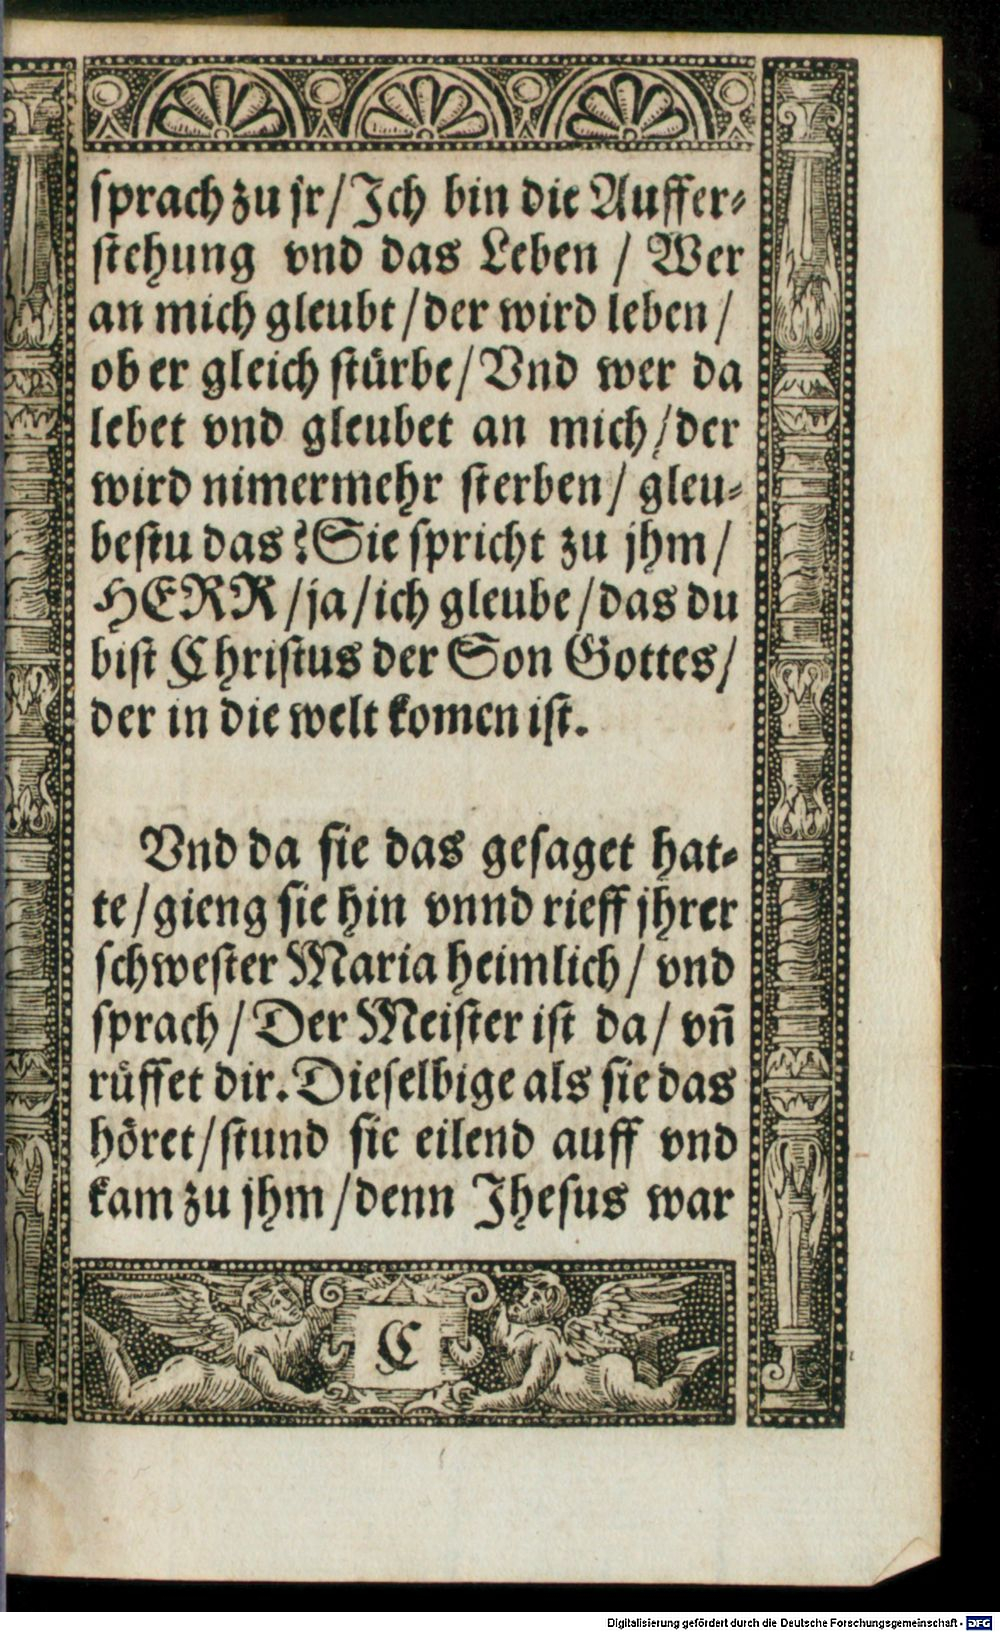 sprach zu jr/Ich bin die Auffer⸗
stehung vnd das Leben / Wer
an mich gleubt/der wird leben/
ob er gleich stürbe/Vnd wer da
lebet vnd gleubet an mich/der
wird nimermehr sterben/ gleu⸗
bestu das? Sie spricht zu jhm/
HERR/ja/ich gleube/das du
bist Christus der Son Gottes/
der in die welt komen ist.
Vnd da sie das gesaget hat⸗
te/gieng sie hin vnnd rieff jhrer
schwester Maria heimlich/ vnd
sprach/Der Meister ist da/ vñ
rüffet dir. Dieselbige als sie das
höret/stund sie eilend auff vnd
kam zu jhm/denn Jhesus war
C
Digitalisierung gefördert durch die Deutsche Forschungsgemeinschaft - DFG